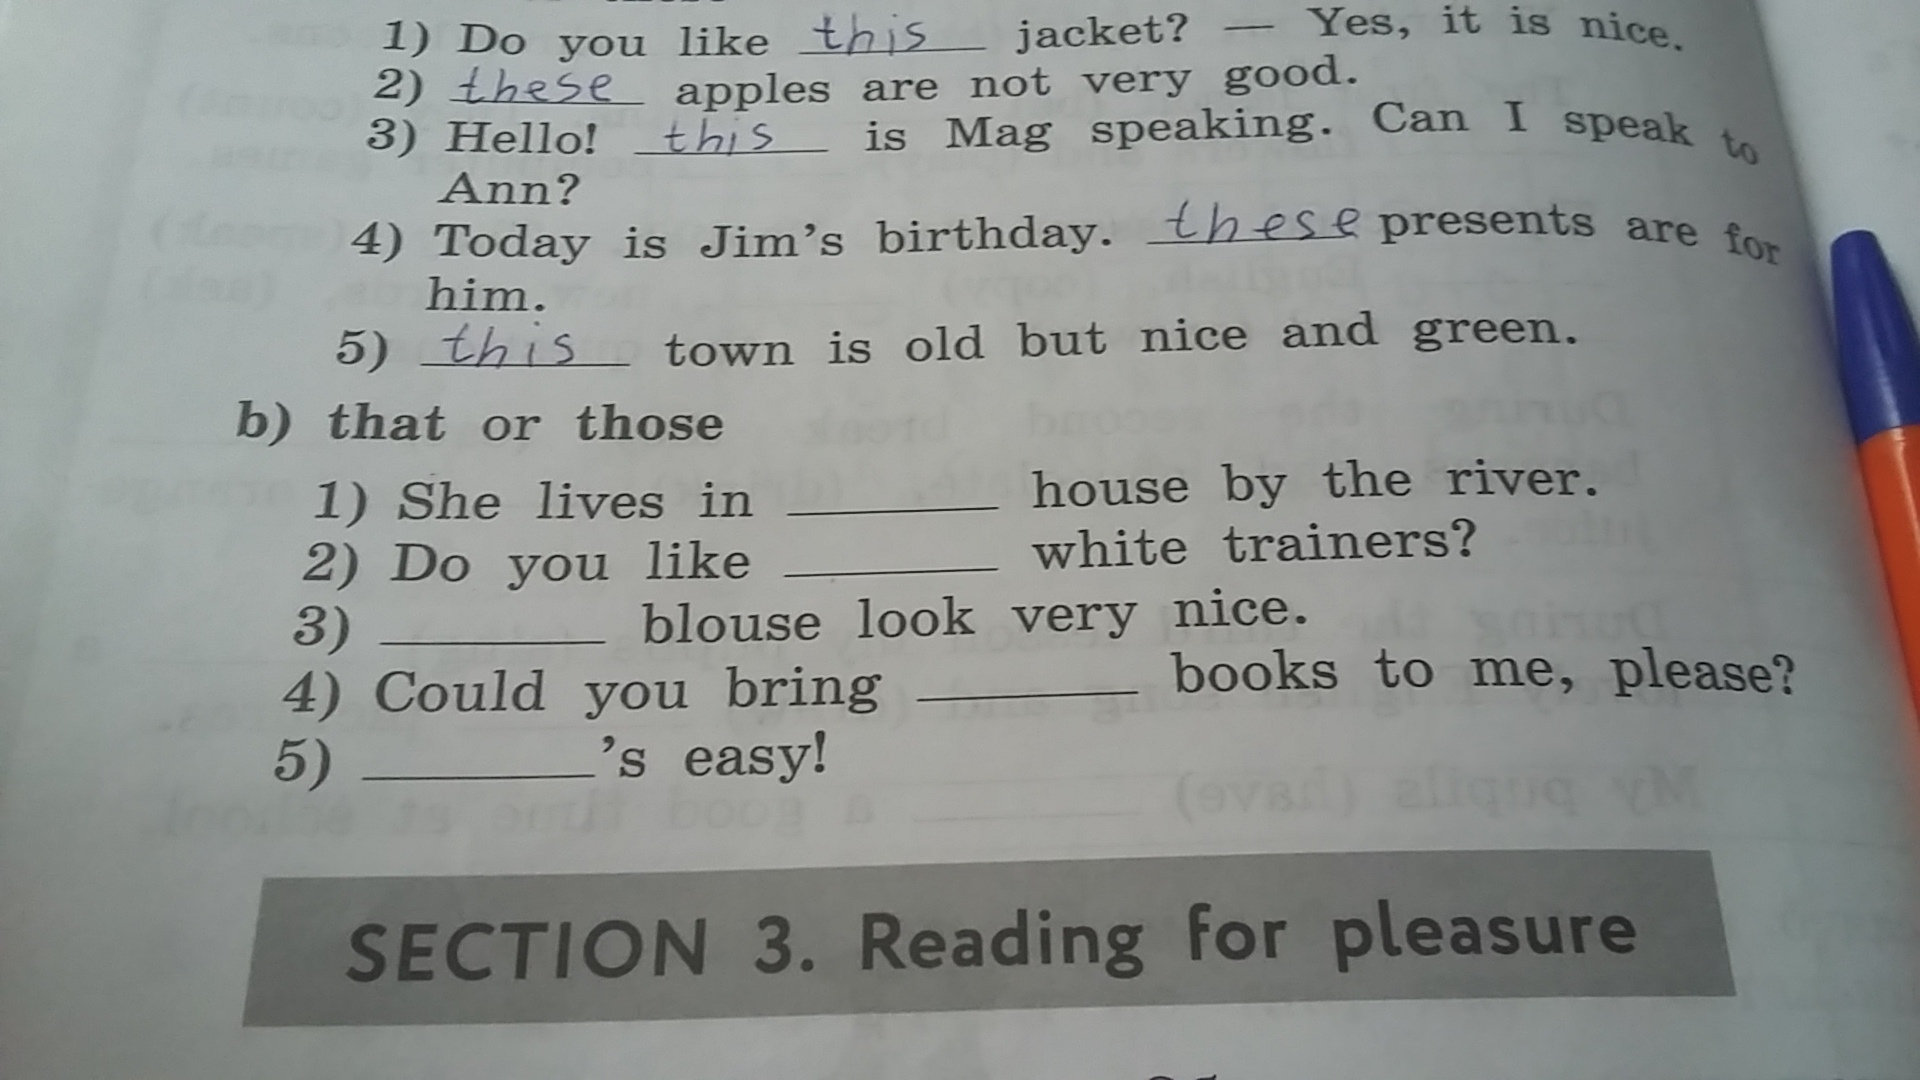 1) Do you like this jacket? — Yes, it is nice.
2) these apples are not very good.
3) Hello! this is Mag speaking. Can I speak to
Ann?
4) Today is Jim's birthday. these presents are for
him.
5) this town is old but nice and green.
b) that or those
1) She lives in ______ house by the river.
2) Do you like ______ white trainers?
3) ______ blouse look very nice.
4) Could you bring ______ books to me, please?
5) ______'s easy!
SECTION 3. Reading for pleasure